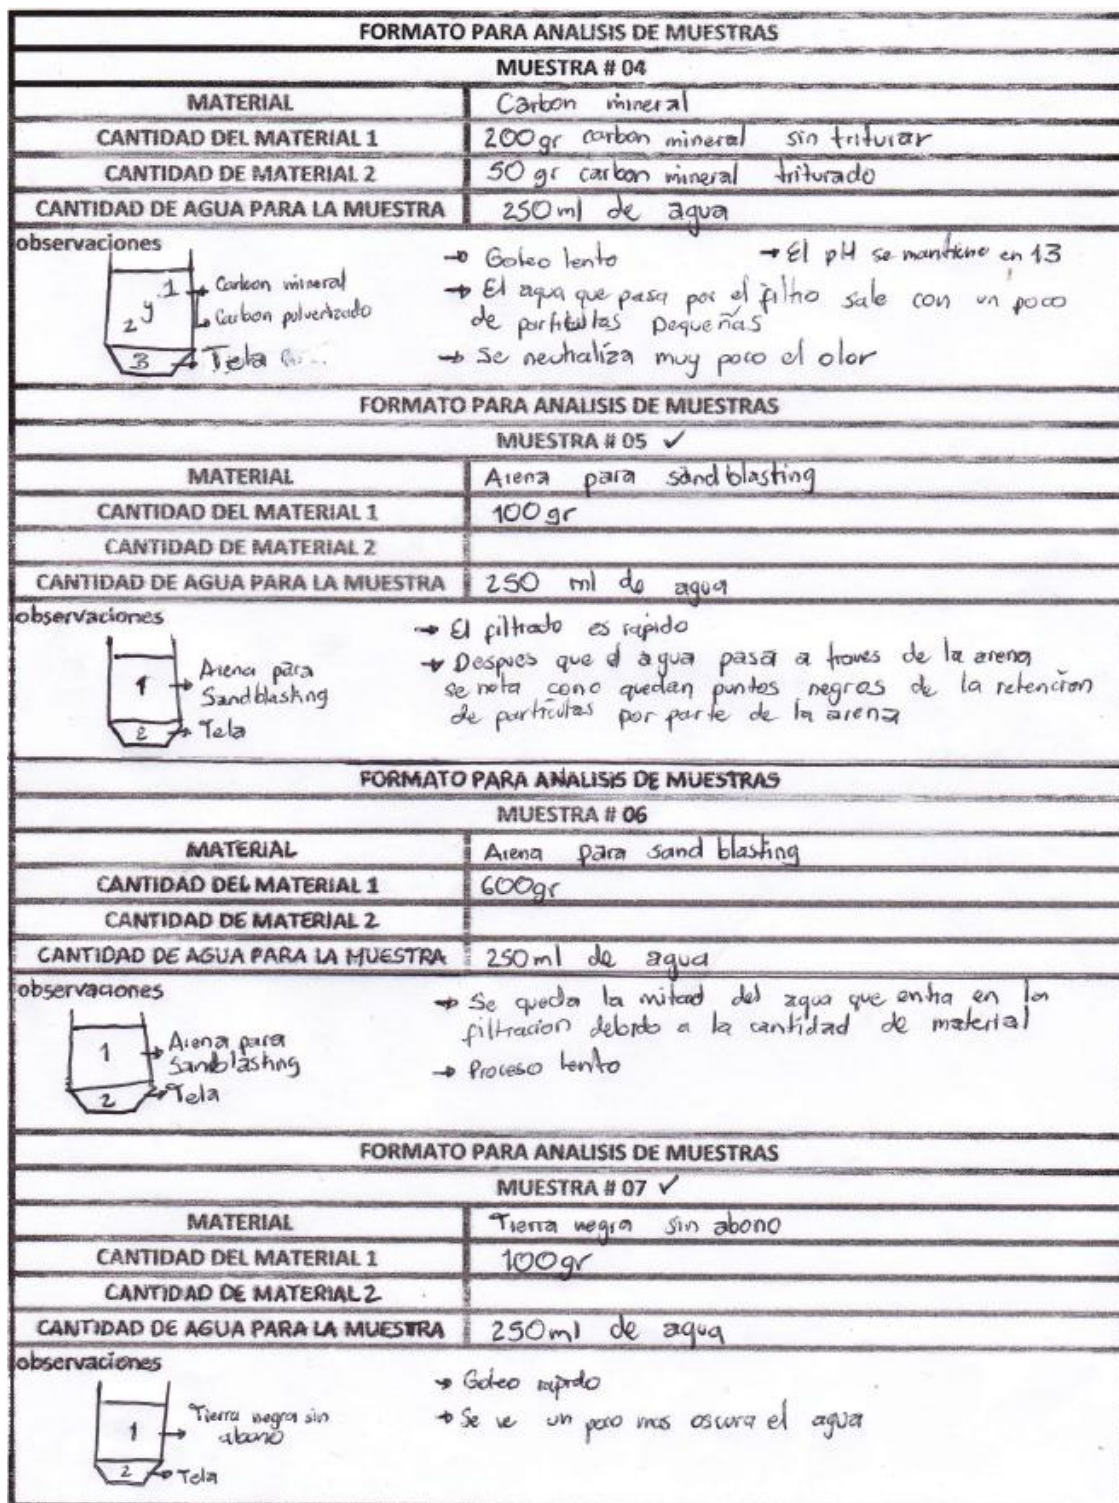 FORMATO PARA ANALISIS DE MUESTRAS
MUESTRA # 04
MATERIAL Carbon mineral
CANTIDAD DEL MATERIAL 1 200gr carbon mineral sin triturar
CANTIDAD DE MATERIAL 2 50 gr carbon mineral triturado
CANTIDAD DE AGUA PARA LA MUESTRA 250ml de agua
observaciones
1 y 2 Carbon mineral
Carbon pulverizado
3 Tela
→ Goteo lento → El pH se mantiene en 13
→ El agua que pasa por el filtro sale con un poco
de particulas pequeñas
→ Se neutraliza muy poco el olor
FORMATO PARA ANALISIS DE MUESTRAS
MUESTRA # 05 ✓
MATERIAL Arena para sandblasting
CANTIDAD DEL MATERIAL 1 100gr
CANTIDAD DE MATERIAL 2
CANTIDAD DE AGUA PARA LA MUESTRA 250 ml de agua
observaciones
1 → Arena para
Sandblasting
2 → Tela
→ El filtrado es rapido
→ Despues que el agua pasa a traves de la arena
se nota como quedan puntos negros de la retencion
de particulas por parte de la arena
FORMATO PARA ANALISIS DE MUESTRAS
MUESTRA # 06
MATERIAL Arena para sand blasting
CANTIDAD DEL MATERIAL 1 600gr
CANTIDAD DE MATERIAL 2
CANTIDAD DE AGUA PARA LA MUESTRA 250ml de agua
observaciones
1 → Arena para
Sandblasting
2 → Tela
→ Se queda la mitad del agua que entra en la
filtracion debido a la cantidad de material
→ Proceso lento
FORMATO PARA ANALISIS DE MUESTRAS
MUESTRA # 07 ✓
MATERIAL Tierra negra sin abono
CANTIDAD DEL MATERIAL 1 100gr
CANTIDAD DE MATERIAL 2
CANTIDAD DE AGUA PARA LA MUESTRA 250ml de agua
observaciones
1 → Tierra negra sin
abono
2 → Tela
→ Goteo rapido
→ Se ve un poco mas oscura el agua